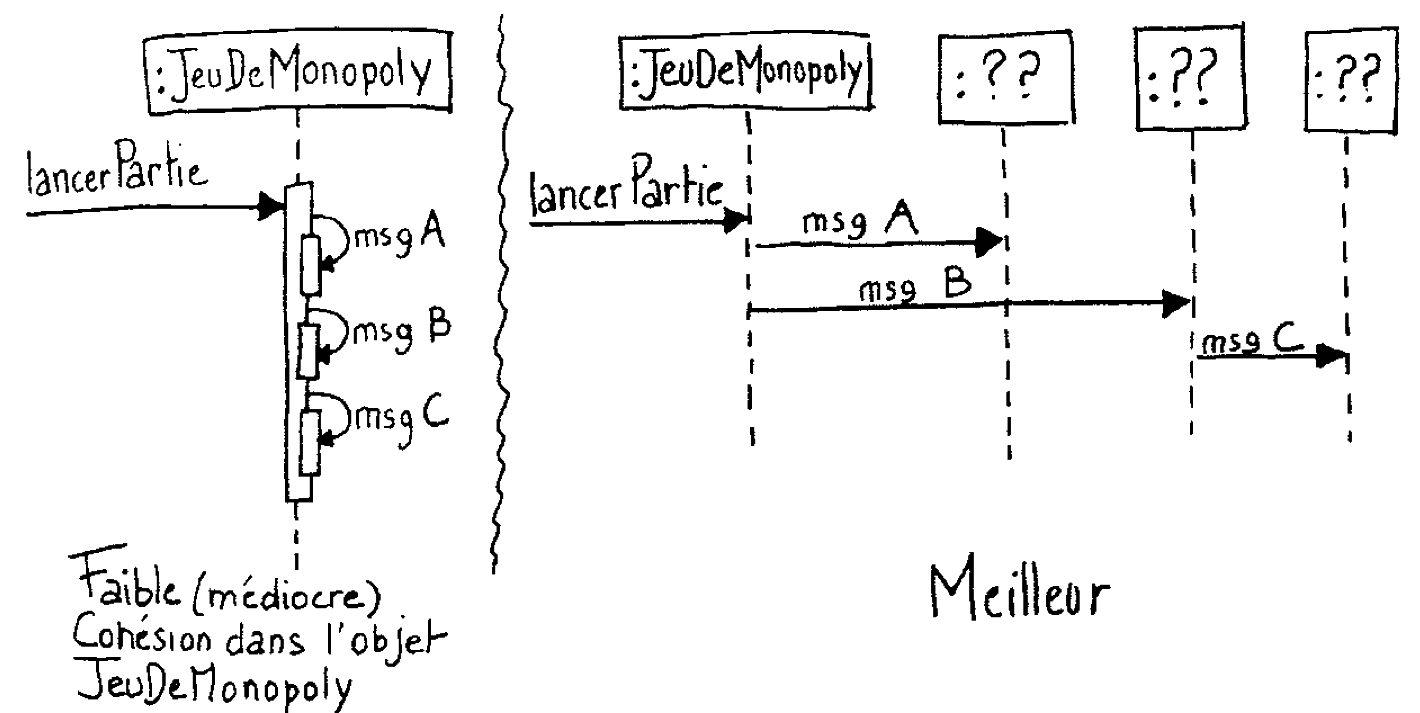 :JeuDeMonopoly
lancerPartie
msg A
msg B
msg C
Faible (médiocre)
Cohésion dans l'objet
JeuDeMonopoly
:JeuDeMonopoly
:??
:??
:??
lancerPartie
msg A
msg B
msg C
Meilleur